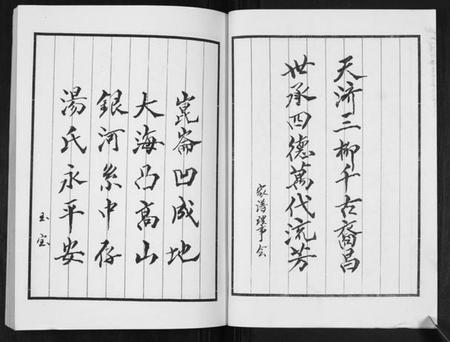 天济三柳千古裔昌
世承四德萬代流芳
家谱理事会
崑崙凹成地
大海凸高山
銀河系中存
湯氏永平安
玉宝